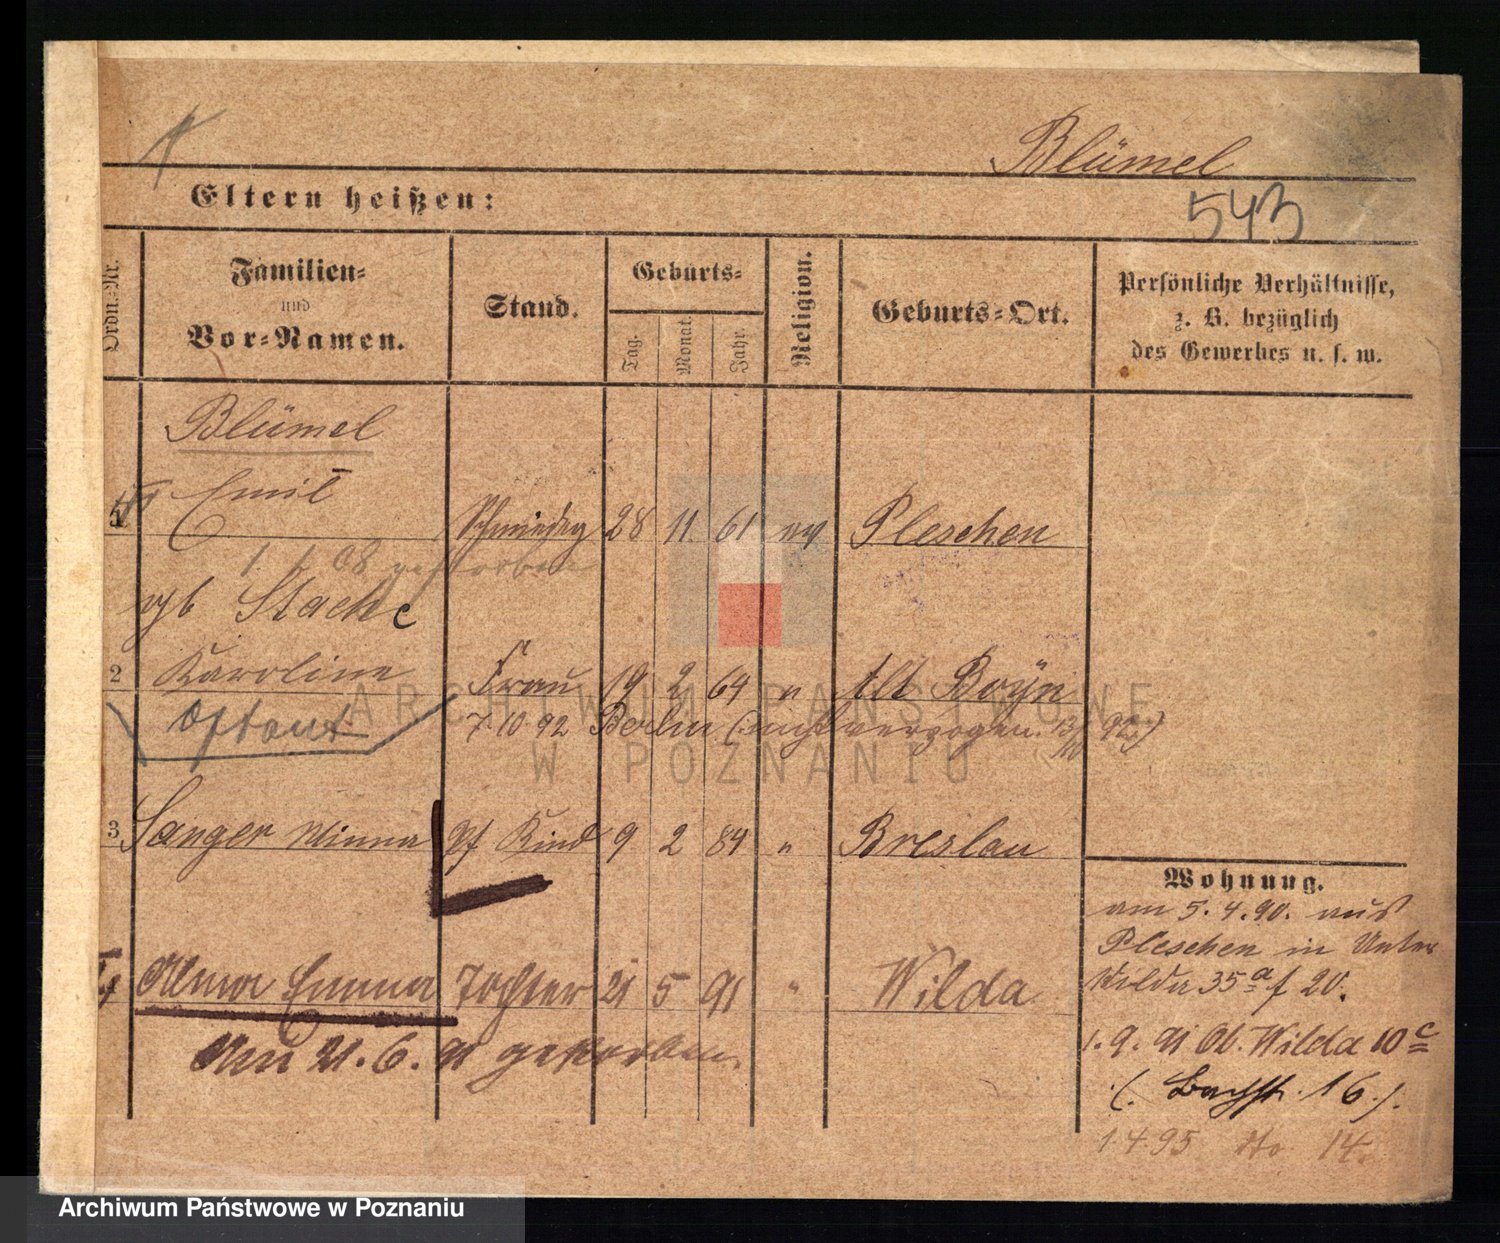 Blümel
Eltern heißen:
543
Ordn.-Nr.
Familien-
und
Vor-Namen.
Stand.
Geburts-
Tag.
Monat.
Jahr.
Religion.
Geburts-Ort.
Persönliche Verhältnisse,
z. B. bezüglich
des Gewerbes u. s. w.
Blümel
Emil
Schmiedeg 28 11. 61 ev Pleschen
1. 1. 08 gestorben
gb Stache
2 Karoline Frau 19 2 64 " Alt Boyn
7.10 92 Berlin (: nicht verzogen. 92.)
3 Sanger Minna Pf Kind 9 2 84 " Breslau
4 Alma Emma Tochter 21 5 91 " Wilda
Am 21. 6. 91 gestorben.
Wohnung.
am 5. 4. 90. aus
Pleschen in Unter
Wilda 35a f 20.
1. 9. 91 Ob. Wilda 10c
(. Bachstr. 16.).
1.4.95 do 14.
ARCHIWUM PAŃSTWOWE
W POZNANIU
Archiwum Państwowe w Poznaniu